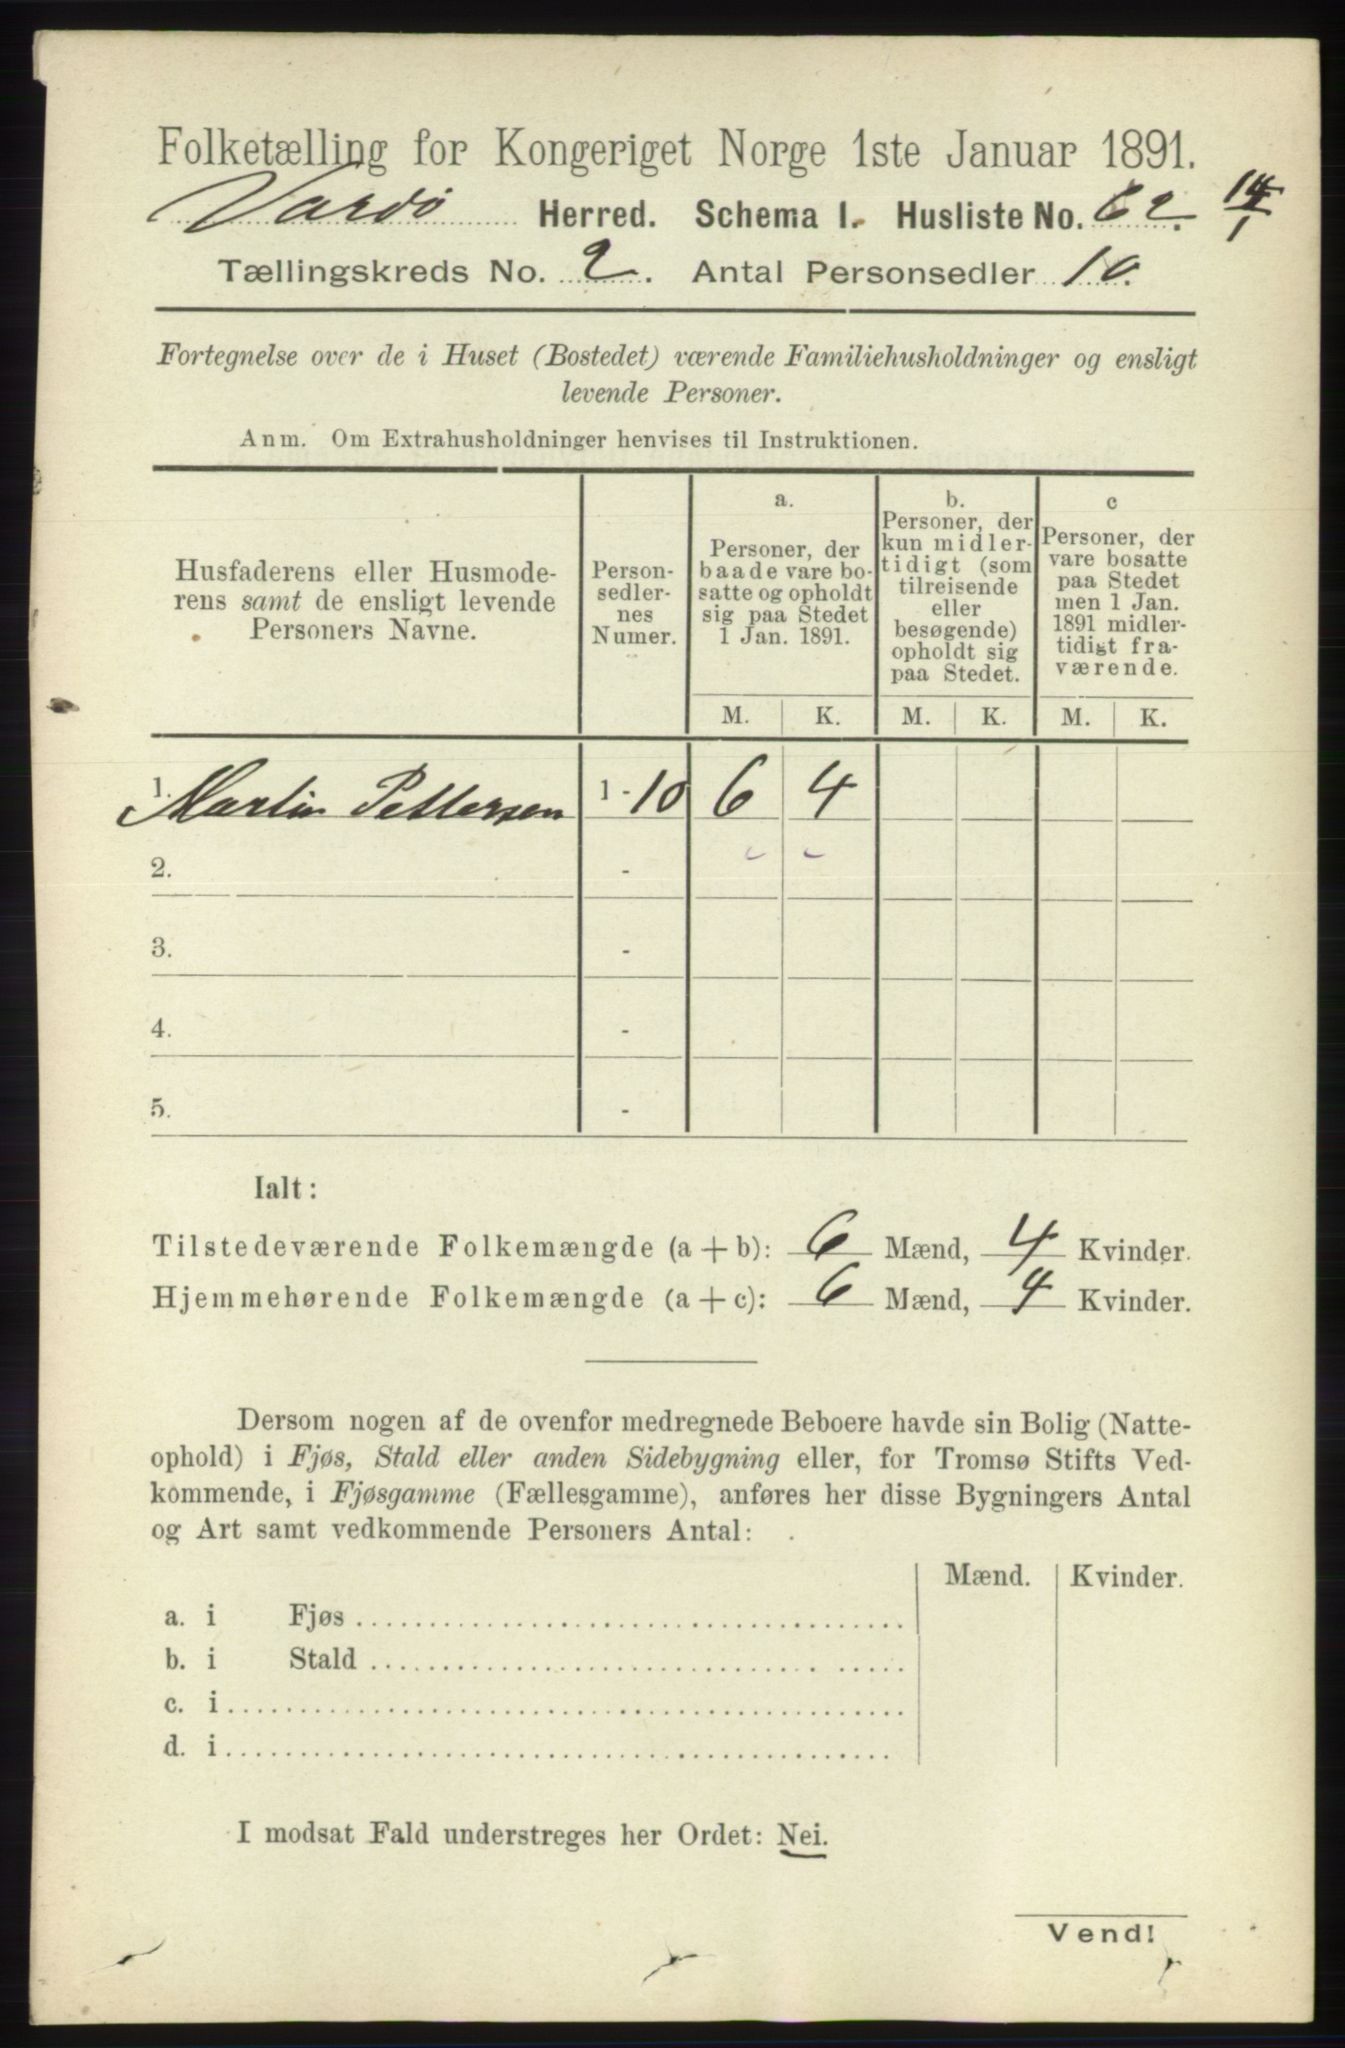 Folketælling for Kongeriget Norge 1ste Januar 1891.
Vardø Herred. Schema I. Husliste No. 62. 14/1
Tællingskreds No. 2. Antal Personsedler 10.
Fortegnelse over de i Huset (Bostedet) værende Familiehusholdninger og ensligt
levende Personer.
Anm. Om Extrahusholdninger henvises til Instruktionen.
Husfaderens eller Husmode-
rens samt de ensligt levende
Personers Navne.
Person-
sedler-
nes
Numer.
a.
Personer, der
baade vare bo-
satte og opholdt
sig paa Stedet
1 Jan. 1891.
b.
Personer, der
kun midler-
tidigt (som
tilreisende
eller
besøgende)
opholdt sig
paa Stedet.
c
Personer, der
vare bosatte
paa Stedet
men 1 Jan.
1891 midler-
tidigt fra-
værende.
M. K. M. K. M. K.
1. Martin Pettersen 1-10 6 4
2. -
3. -
4. -
5. -
Ialt:
Tilstedeværende Folkemængde (a + b): 6 Mænd, 4 Kvinder.
Hjemmehørende Folkemængde (a + c): 6 Mænd, 4 Kvinder.
Dersom nogen af de ovenfor medregnede Beboere havde sin Bolig (Natte-
ophold) i Fjøs, Stald eller anden Sidebygning eller, for Tromsø Stifts Ved-
kommende, i Fjøsgamme (Fællesgamme), anføres her disse Bygningers Antal
og Art samt vedkommende Personers Antal:
Mænd. Kvinder.
a. i Fjøs
b. i Stald
c. i
d. i
I modsat Fald understreges her Ordet: Nei.
Vend!